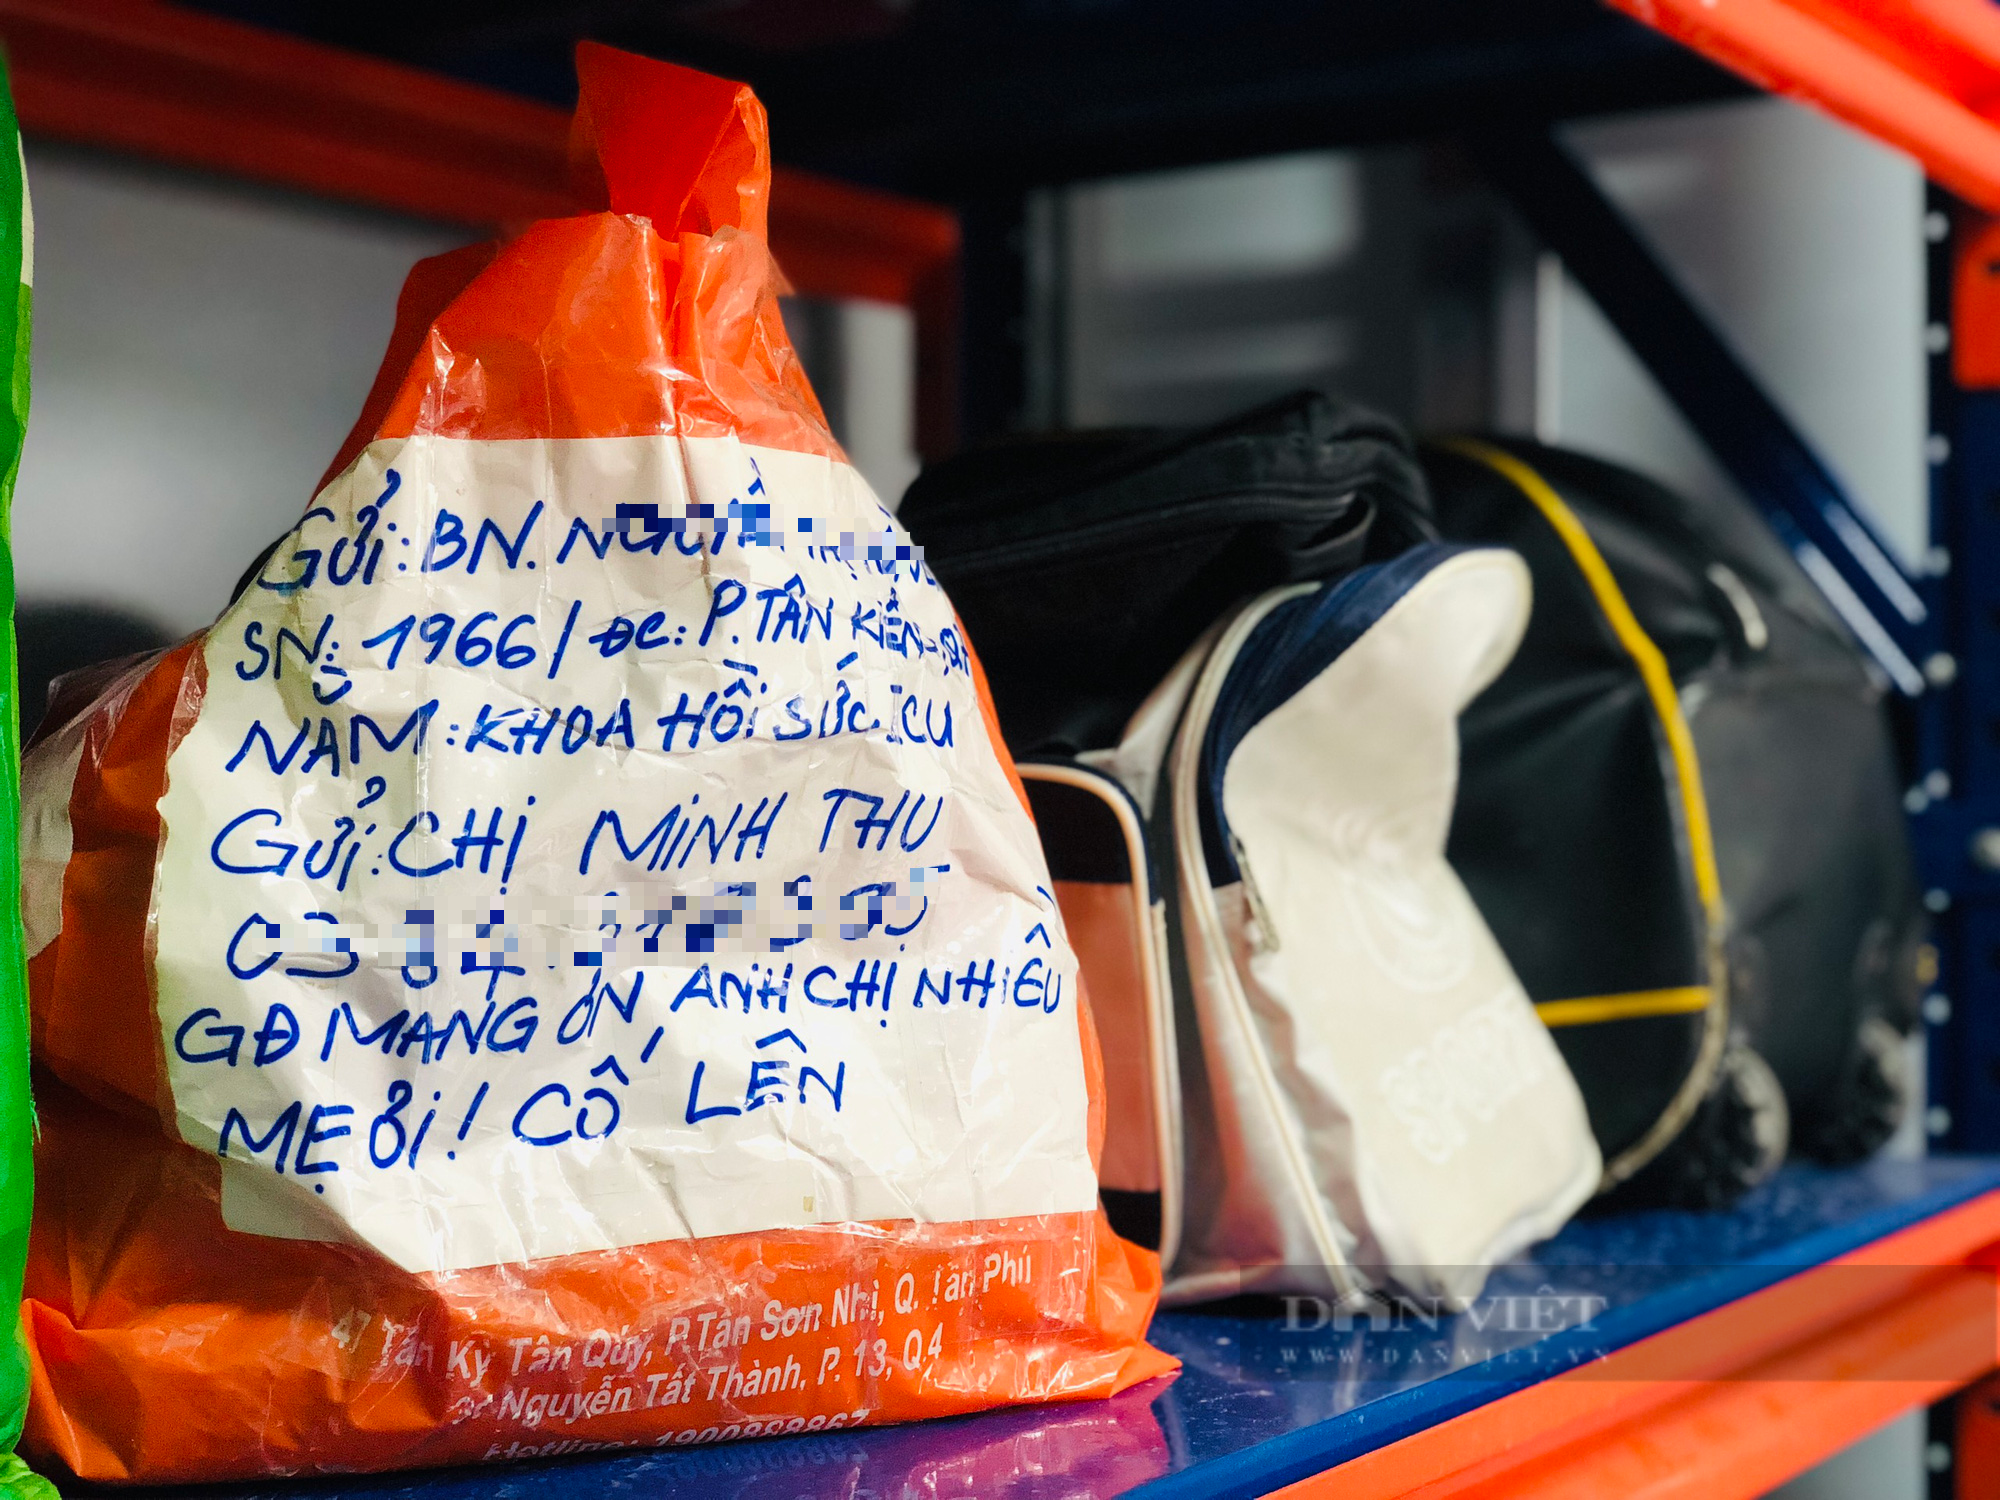 GỬI: BN.
SN: 1966 / ĐC: P. TÂN KIỂNG,
NẰM: KHOA HỒI SỨC ICU
GỬI: CHỊ MINH THU
GĐ MANG ƠN ANH CHỊ NHIỀU
MẸ ƠI! CỐ LÊN
47 Tân Kỳ Tân Qúy, P.Tân Sơn Nhì, Q. Tân Phú
Nguyễn Tất Thành, P. 13, Q.4
Hotline: 1900888867
SPORT
DÂN VIỆT
WWW.DANVIET.VN